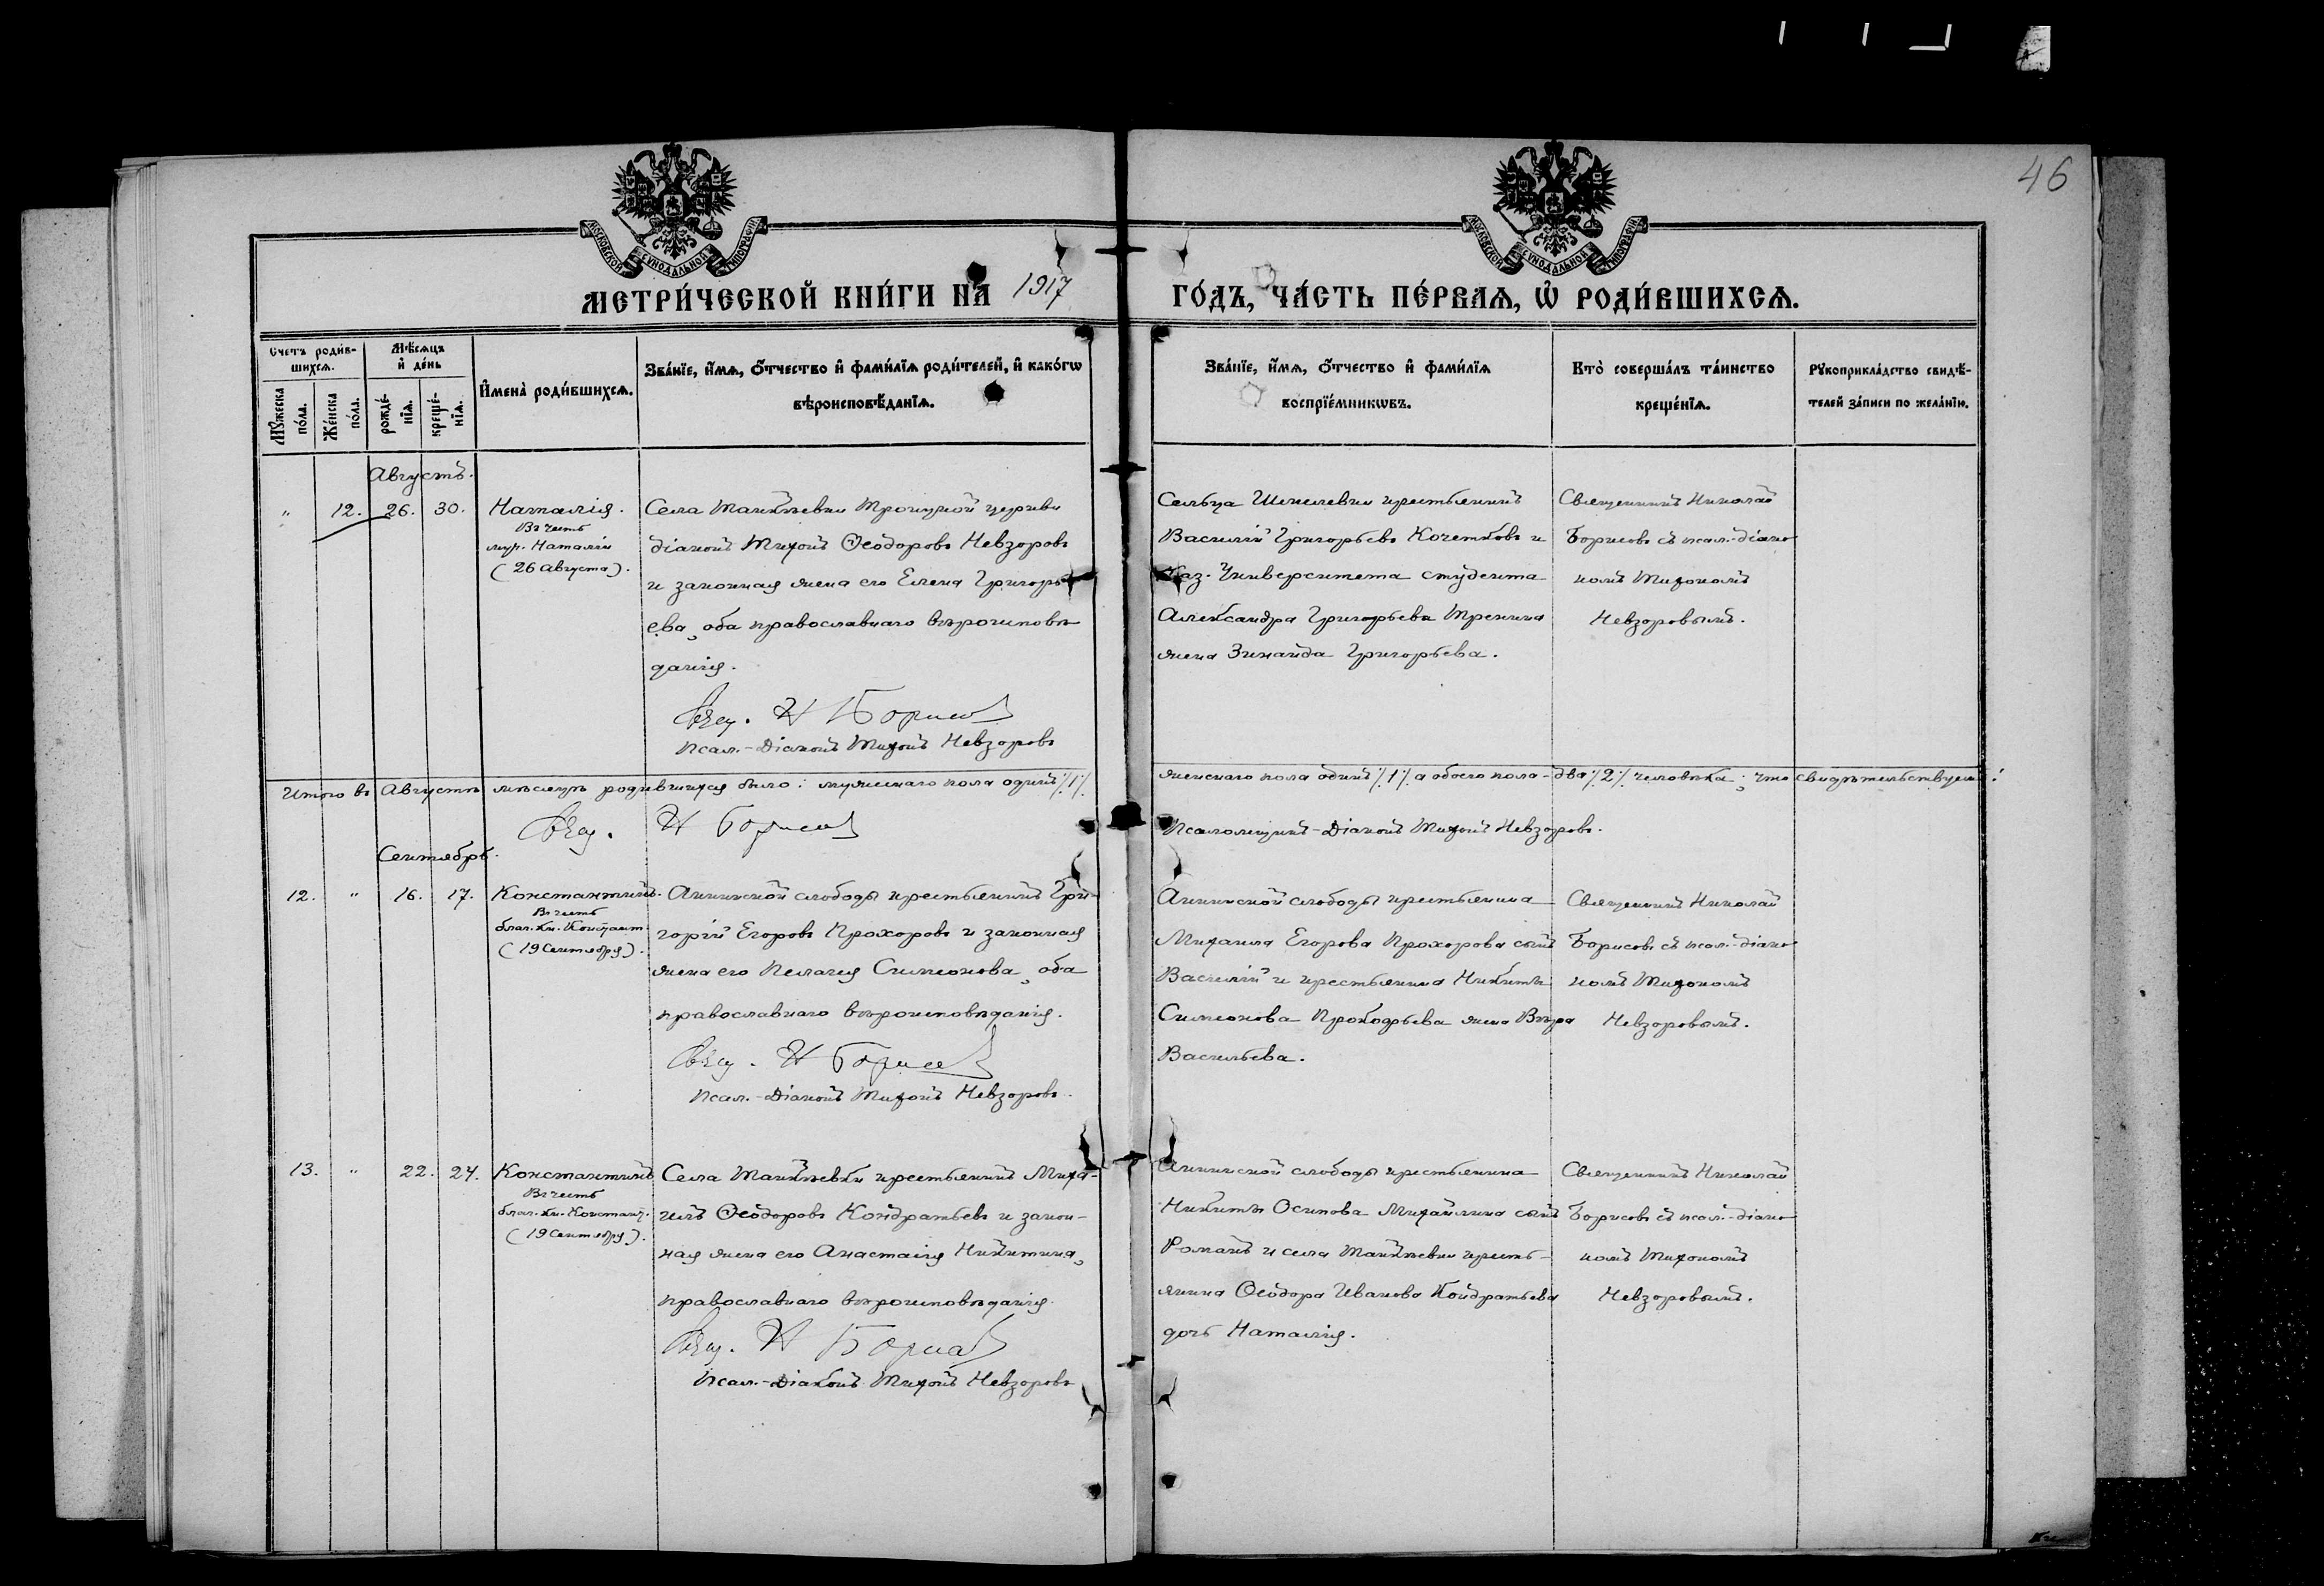 46
МОСКОВСКОЙ СУНОДАЛЬНОЙ ТИПОГРАФІИ
МОСКОВСКОЙ СУНОДАЛЬНОЙ ТИПОГРАФІИ
МЕТРИ́ЧЕСКОЙ КНИ́ГИ НА 1917
ГО́ДЪ, ЧА́СТЬ ПЕ́РВАѦ, Ѡ҆ РОДИ́ВШИХСѦ.
Счетъ роди́в-
шихсѧ.
Мꙋжеска по́ла.
Же́нска по́ла.
Мѣ́сѧцъ
и҆ де́нь
рожде́-
нїѧ.
креще́-
нїѧ.
И҆мена̀ роди́вшихсѧ.
Зва́нїе, и҆́мѧ, ѻ҆́тчество и҆ фами́лїѧ роди́телей, и҆ како́гѡ
вѣроисповѣ́данїѧ.
Зва́нїе, и҆́мѧ, ѻ҆́тчество и҆ фами́лїѧ
воспрїе́мникѡвъ.
Кто̀ соверша́лъ та́инство
креще́нїѧ.
Рꙋкоприкла́дство свидѣ́-
телей за́писи по жела́нїю.
Августъ.
" 12. 26. 30. Наталія.
Въ честь
муч. Наталіи
(26 Августа).
Села Троицкой церкви
діаконъ Тихонъ Ѳеодоровъ Невзоровъ
и законная жена его Елена Григорь
ева, оба православнаго вѣроисповѣ
данія.
Свящ. Н Борисовъ
Псал.-Діаконъ Тихонъ Невзоровъ
Сельца крестьянинъ
Василій Григорьевъ Кочетковъ и
Каз. Университета студента
Александра Григорьева Тренина
жена Зинаида Григорьева.
Священникъ Николай
Борисовъ съ псал.-діако
номъ Тихономъ
Невзоровымъ.
Итого въ Августѣ мѣсяцѣ родившихся было: мужескаго пола одинъ ⁒1⁒
женскаго пола одинъ ⁒1⁒ а обоего пола - два ⁒2⁒ человѣка; что свидѣтельствуемъ:
Свящ. Н Борисовъ
Псаломщикъ-Діаконъ Тихонъ Невзоровъ.
Сентябрь.
12. " 16. 17. Константинъ.
Въ честь
благ. кн. Констант.
(19 Сентября).
Аннинской слободы крестьянинъ Гри-
горій Егоровъ Прохоровъ и законная
жена его Пелагія Симеонова, оба
православнаго вѣроисповѣданія.
Свящ. Н Борисовъ
Псал.-Діаконъ Тихонъ Невзоровъ.
Аннинской слободы крестьянина
Михаила Егорова Прохорова сынъ
Василій и крестьянина Никиты
Симеонова Прокофьева жена Вѣра
Васильева.
Священникъ Николай
Борисовъ съ псал.-діако
номъ Тихономъ
Невзоровымъ.
13. " 22. 24. Константинъ
Въ честь
благ. кн. Констант.
(19 Сентября).
Села крестьянинъ Миха-
илъ Ѳеодоровъ Кондратьевъ и закон-
ная жена его Анастасія Никитина,
православнаго вѣроисповѣданія.
Свящ. Н Борисовъ
Псал.-Діаконъ Тихонъ Невзоровъ
Аннинской слободы крестьянина
Никиты Осипова Михайлина сынъ
Романъ и села кресть-
янина Ѳеодора Иванова Кондратьева
дочь Наталія.
Священникъ Николай
Борисовъ съ псал.-діако
номъ Тихономъ
Невзоровымъ.